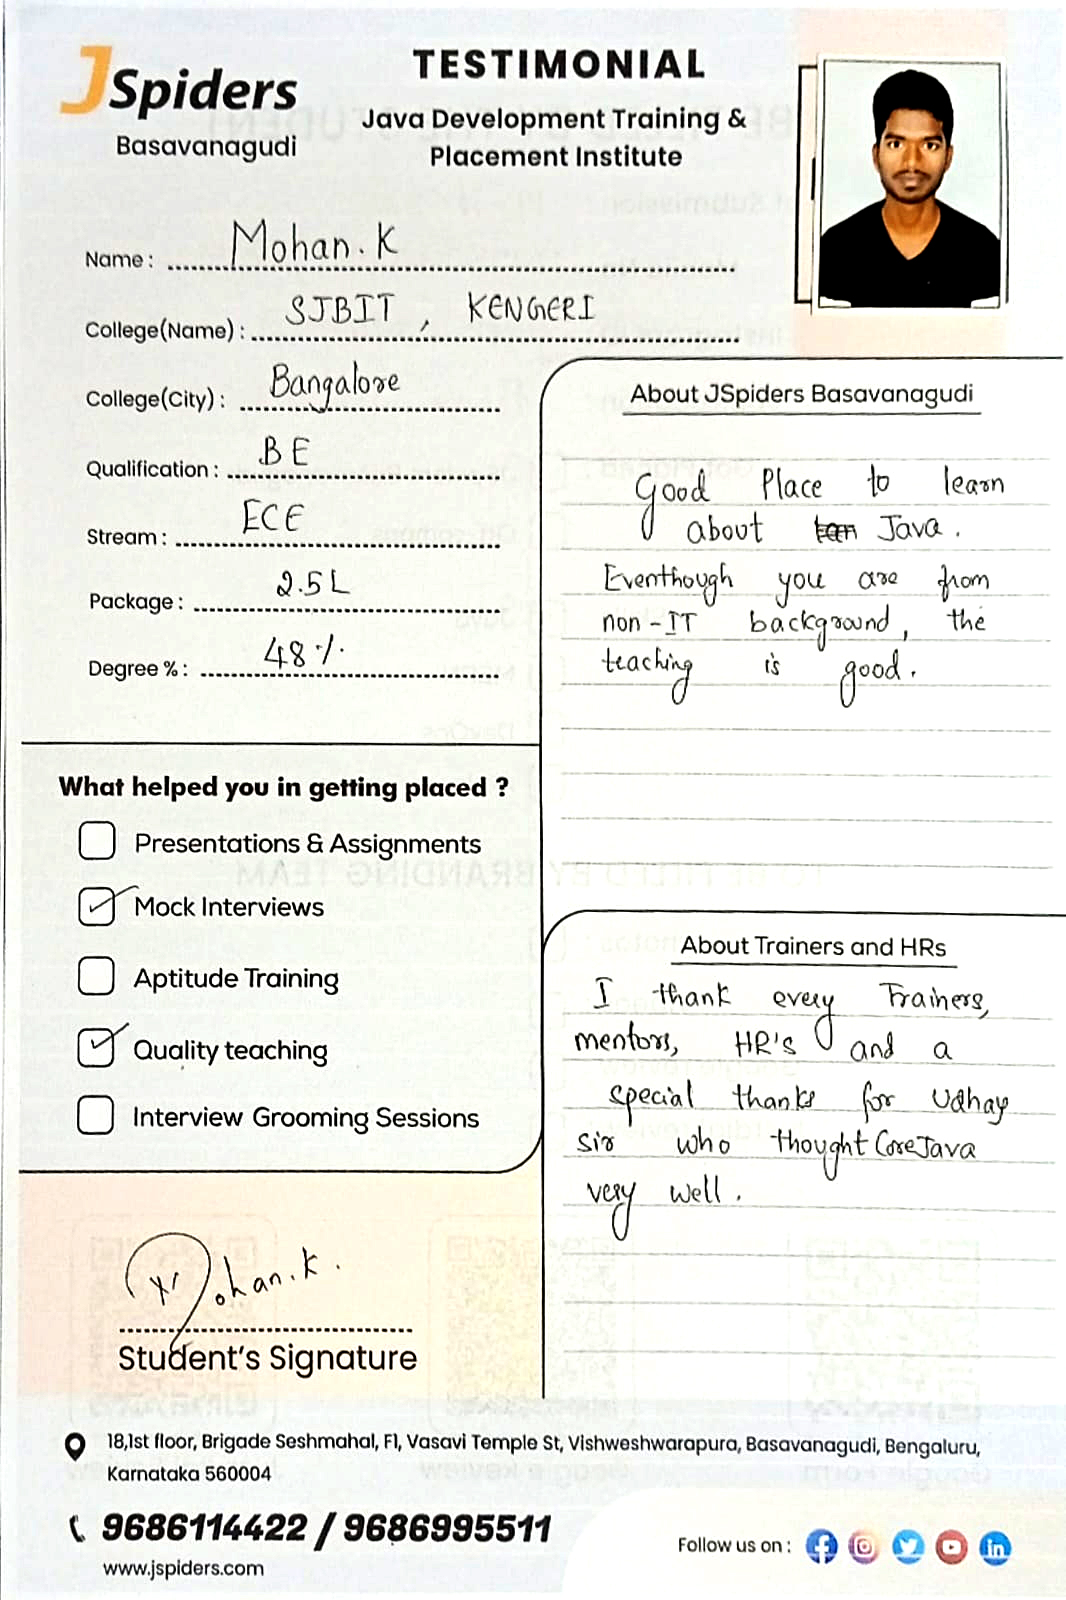 JSpiders
Basavanagudi
TESTIMONIAL
Java Development Training &
Placement Institute
Name : Mohan.K
College(Name) : SJBIT , KENGERI
College(City) : Bangalore
Qualification : BE
Stream : ECE
Package : 2.5L
Degree % : 48%.
About JSpiders Basavanagudi
Good Place to learn
about Java.
Eventhough you are from
non-IT background, the
teaching is good.
What helped you in getting placed ?
Presentations & Assignments
Mock Interviews
Aptitude Training
Quality teaching
Interview Grooming Sessions
About Trainers and HRs
I thank every Trainers,
mentors, HR's and a
special thanks for Udhay
sir who thought CoreJava
very well.
Mohan.K.
Student's Signature
18,1st floor, Brigade Seshmahal, F1, Vasavi Temple St, Vishweshwarapura, Basavanagudi, Bengaluru,
Karnataka 560004
9686114422 / 9686995511
www.jspiders.com
Follow us on :